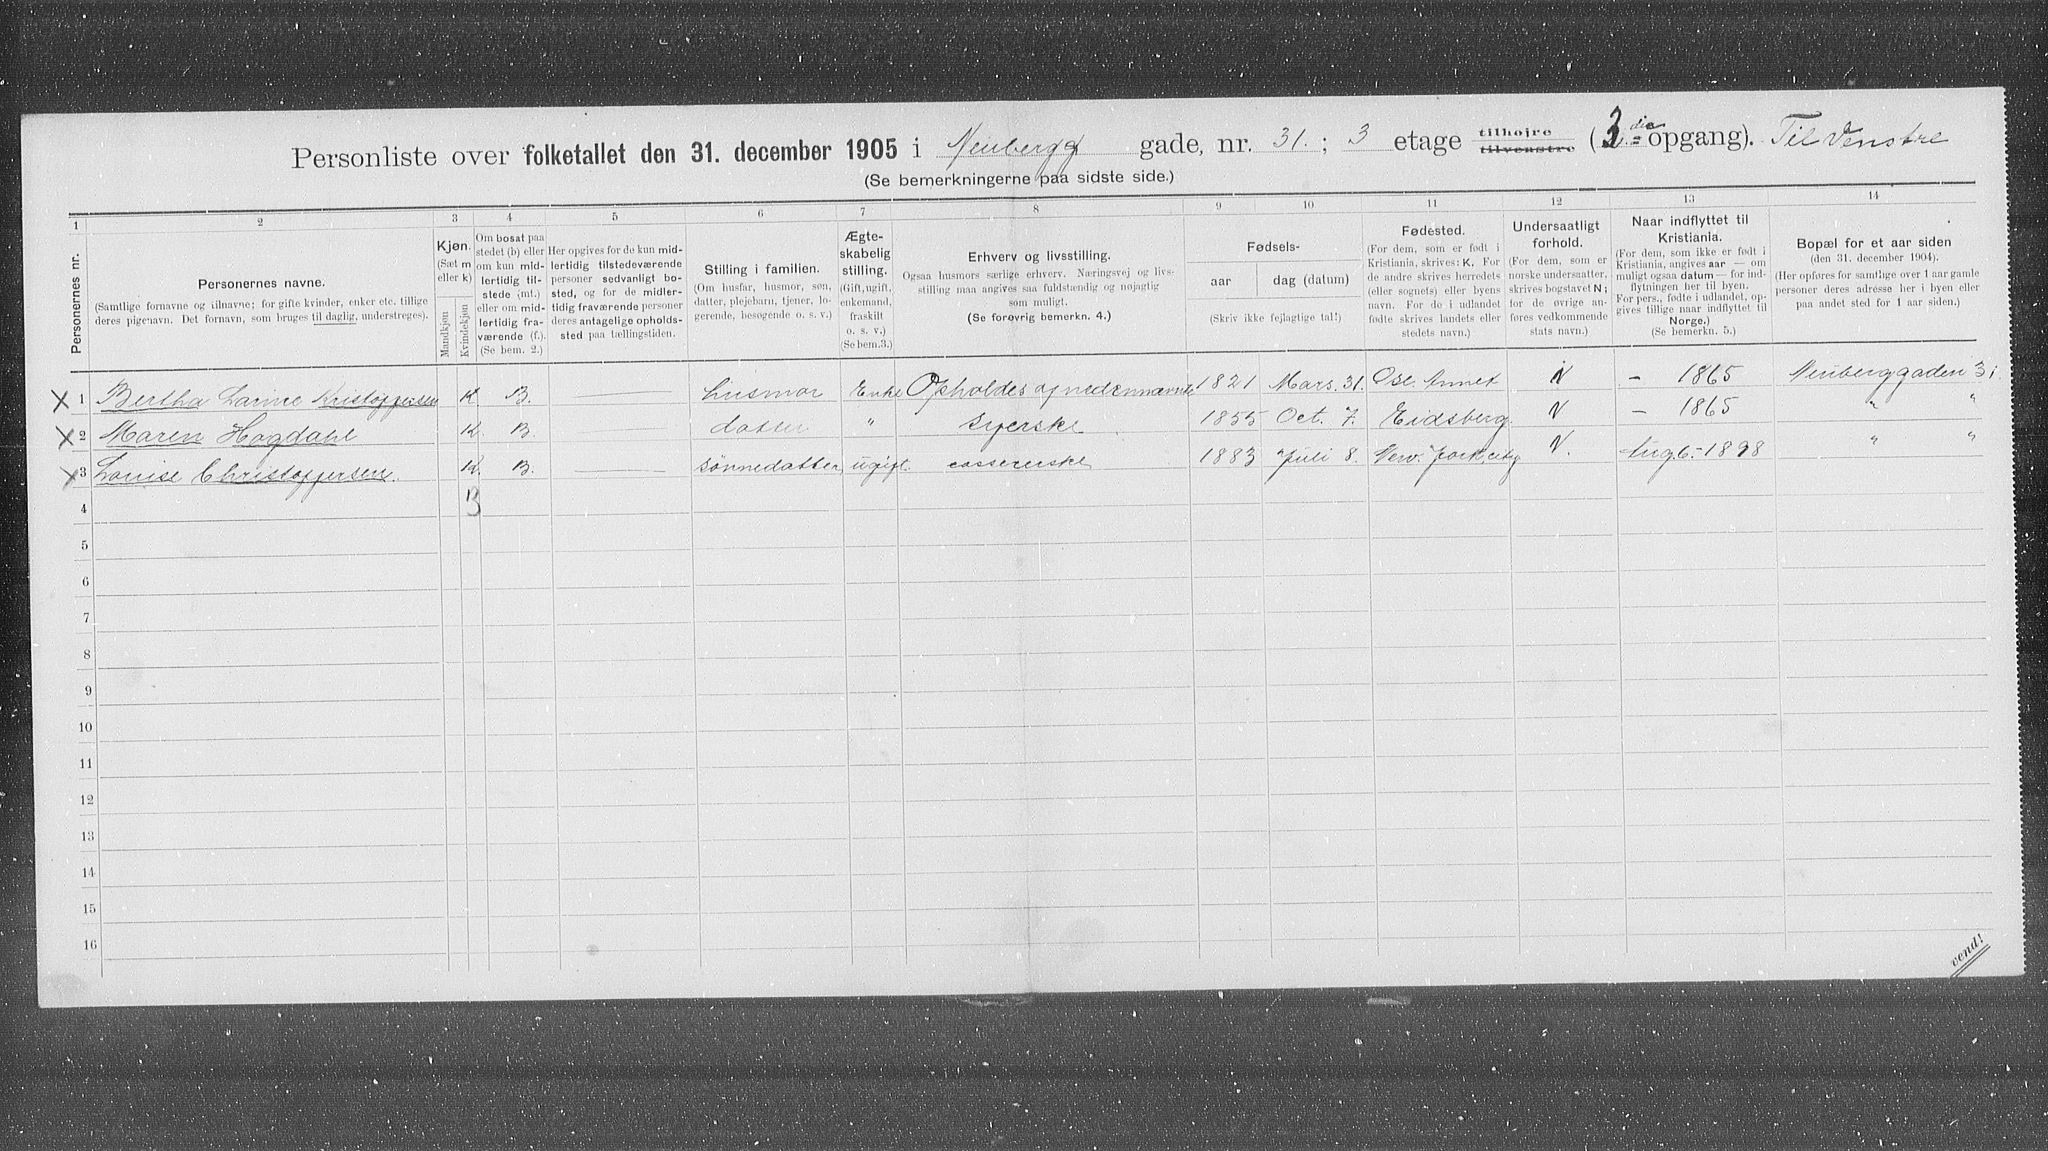 Personliste over folketallet den 31. december 1905 i Neubergg gade, nr. 31. ; 3 etage tilhøjre tilvenstre (3die opgang). Til Venstre
(Se bemerkningerne paa sidste side.)
1 2 3 4 5 6 7 8 9 10 11 12 13 14
Personernes nr.
Personernes navne.
(Samtlige fornavne og tilnavne; for gifte kvinder, enker etc. tillige
deres pigenavn. Det fornavn, som bruges til daglig, understreges).
Kjøn.
(Sæt m
eller k)
Mandkjøn
Kvindekjøn
Om bosat paa
stedet (b) eller
om kun mid-
lertidig til-
stede (mt.)
eller om mid-
lertidig fra-
værende (f.).
(Se bem. 2.)
Her opgives for de kun mid-
lertidig tilstedeværende
personer sedvanligt bo-
sted, og for de midler-
tidig fraværende personer
deres antagelige opholds-
sted paa tællingstiden.
Stilling i familien.
(Om husfar, husmor, søn,
datter, plejebarn, tjener, lo-
gerende, besøgende o. s. v.)
Ægte-
skabelig
stilling.
(Gift, ugift,
enkemand,
fraskilt
o. s. v.)
(Se bem.3.)
Erhverv og livsstilling.
Ogsaa husmors særlige erhverv. Næringsvej og livs-
stilling maa angives saa fuldstændig og nøjagtig
som muligt.
(Se forøvrig bemerkn. 4.)
Fødsels-
aar
dag (datum)
(Skriv ikke fejlagtige tal!)
Fødested.
(For dem, som er født i
Kristiania, skrives: K. For
de andre skrives herredets
(eller sognets) eller byens
navn. For de i udlandet
fødte skrives landets eller
stedets navn.)
Undersaatligt
forhold.
(For dem, som er
norske undersaatter,
skrives bogstavet N;
for de øvrige an-
føres vedkommende
stats navn.)
Naar indflyttet til
Kristiania.
(For dem, som ikke er født i
Kristiania, angives aar — om
muligt ogsaa datum — for ind-
flytningen her til byen.
For pers., fødte i udlandet, op-
gives tillige naar indflyttet til
Norge.)
(Se bemerkn. 5.)
Bopæl for et aar siden
(den 31. december 1904).
(Her opføres for samtlige over 1 aar gamle
personer deres adresse her i byen eller
paa andet sted for 1 aar siden.)
X 1 Bertha Larine Kristoffersen K. B. husmor Enke Opholdes af nedennævnte 1821 Mars. 31. N — 1865 Neuberggaden 31
X 2 Maren Hogdahl K. B. datter " Syerske 1855 Oct. 7. Eidsberg. N — 1865 " "
X 3 Louise Christoffersen. K. B. sønnedatter ugift. cassererske 1883 Juli 8. New. York city N. Aug 6.- 1898 " "
4 3
5
6
7
8
9
10
11
12
13
14
15
16
vend!